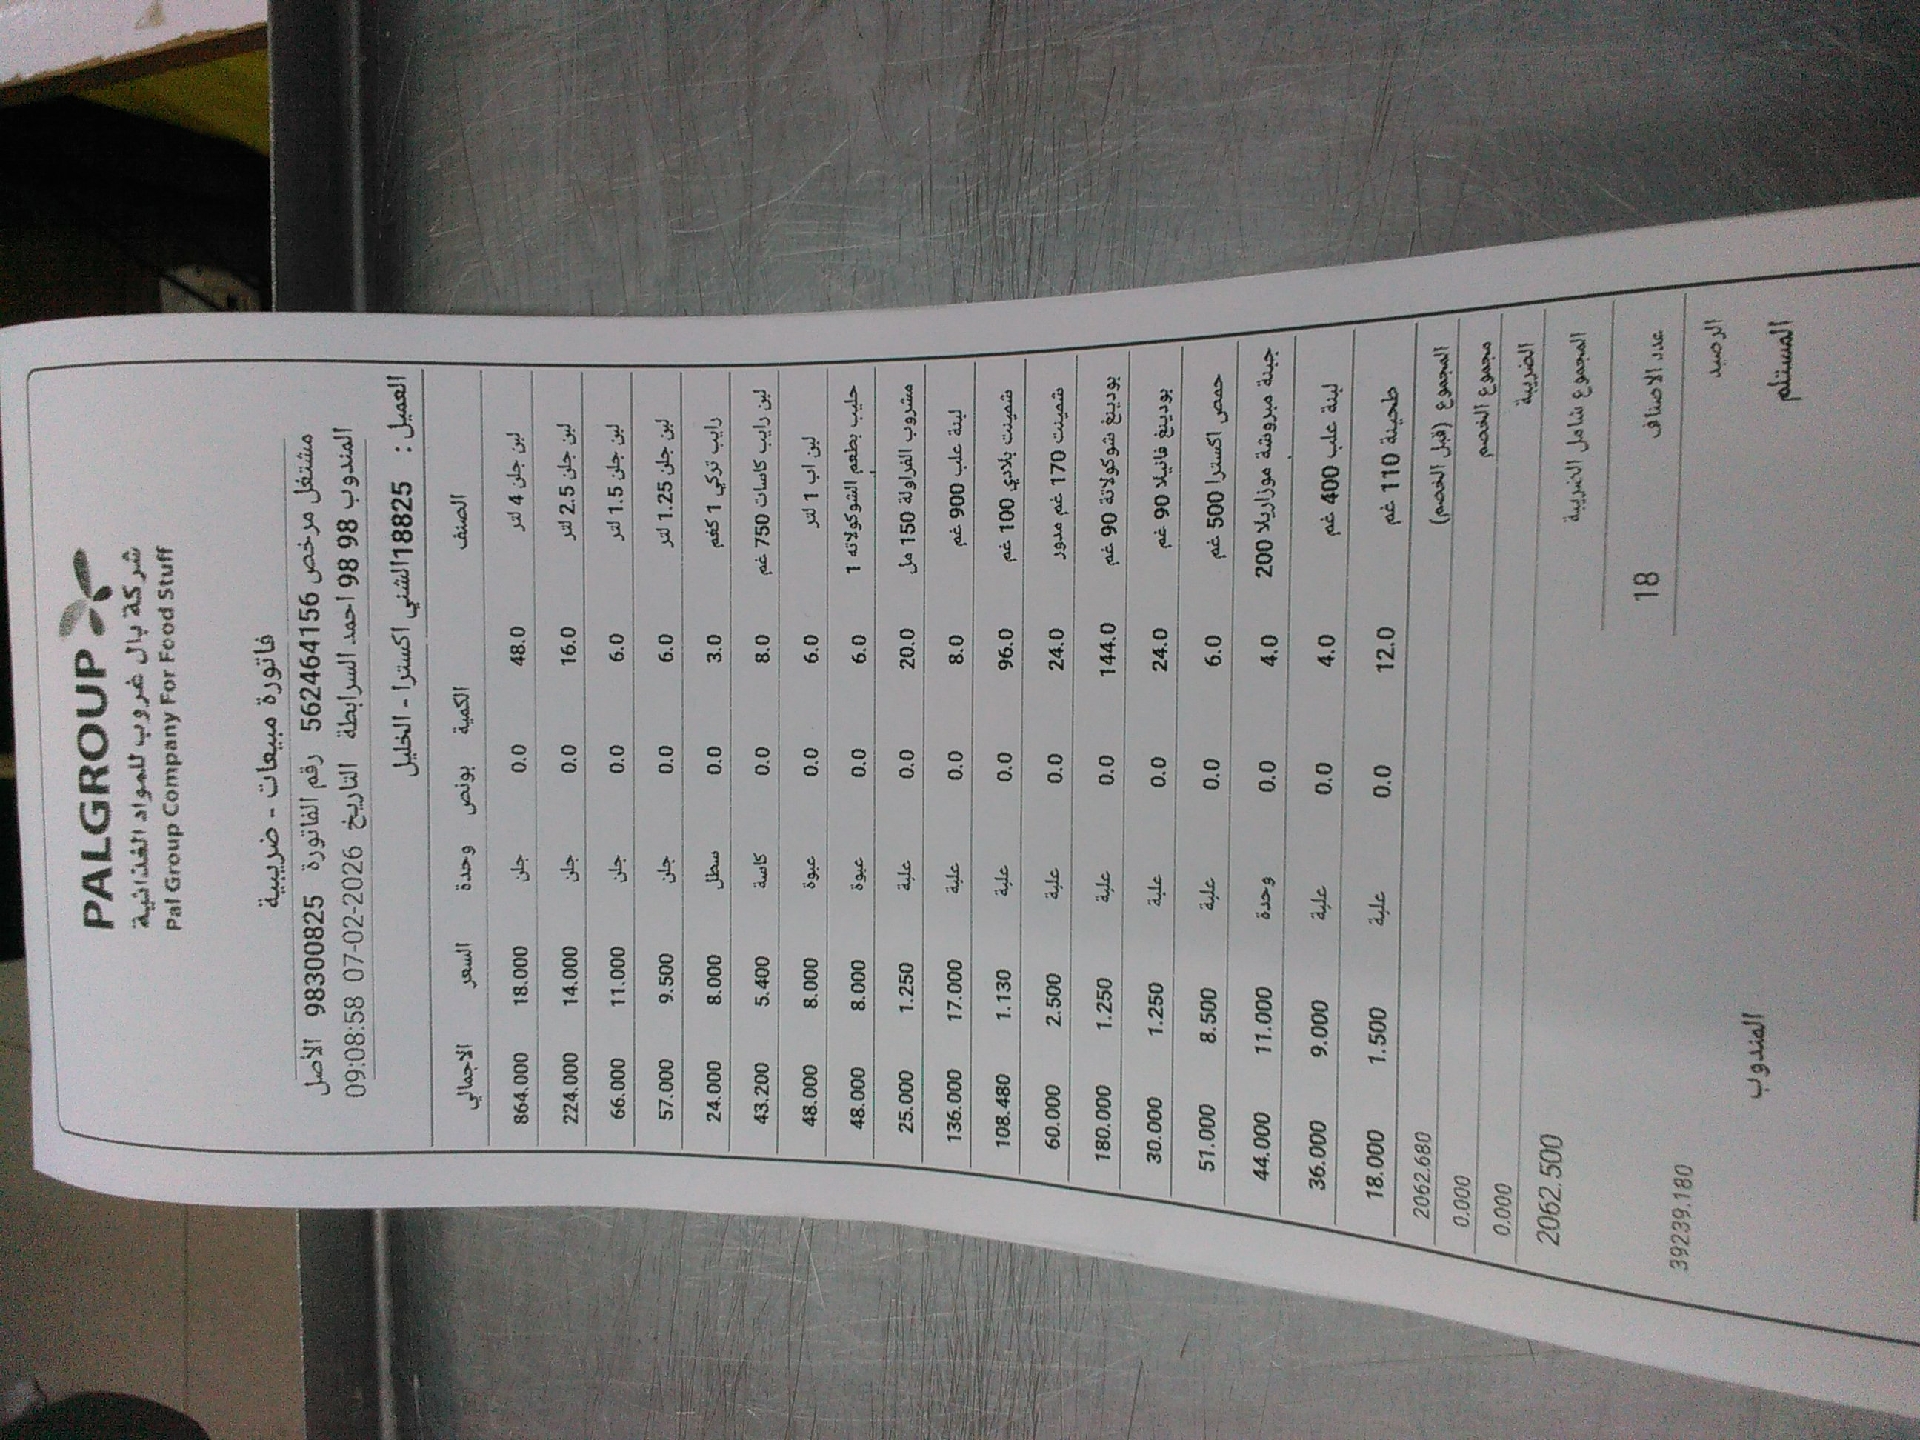 PALGROUP
شركة بال غروب للمواد الغذائية
Pal Group Company For Food Stuff
فاتورة مبيعات - ضريبية
مشتغل مرخص 562464156 رقم الفاتورة 98300825 الأصل
المندوب 98 98 احمد السرابطة التاريخ 2026-02-07 09:08:58
العميل : 18825الشني اكسترا - الخليل
الصنف الكمية بونص وحدة السعر الاجمالي
لبن جلن 4 لتر 48.0 0.0 جلن 18.000 864.000
لبن جلن 2.5 لتر 16.0 0.0 جلن 14.000 224.000
لبن جلن 1.5 لتر 6.0 0.0 جلن 11.000 66.000
لبن جلن 1.25 لتر 6.0 0.0 جلن 9.500 57.000
رايب تركي 1 كغم 3.0 0.0 سطل 8.000 24.000
لبن رايب كاسات 750 غم 8.0 0.0 كاسة 5.400 43.200
لبن اب 1 لتر 6.0 0.0 عبوة 8.000 48.000
حليب بطعم الشوكولاته 1 6.0 0.0 عبوة 8.000 48.000
مشروب الفراولة 150 مل 20.0 0.0 علبة 1.250 25.000
لبنة علب 900 غم 8.0 0.0 علبة 17.000 136.000
شمينت بلادي 100 غم 96.0 0.0 علبة 1.130 108.480
شمينت 170 غم مدور 24.0 0.0 علبة 2.500 60.000
بودينغ شوكولاتة 90 غم 144.0 0.0 علبة 1.250 180.000
بودينغ فانيلا 90 غم 24.0 0.0 علبة 1.250 30.000
حمص اكسترا 500 غم 6.0 0.0 علبة 8.500 51.000
جبنة مبروشة موزاريلا 200 4.0 0.0 وحدة 11.000 44.000
لبنة علب 400 غم 4.0 0.0 علبة 9.000 36.000
طحينة 110 غم 12.0 0.0 علبة 1.500 18.000
المجموع (قبل الخصم) 2062.680
مجموع الخصم 0.000
الضريبة 0.000
المجموع شامل الضريبة 2062.500
عدد الاصناف 18
الرصيد 39239.180
المستلم المندوب